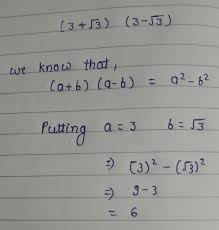 (3+√3) (3-√3)
we know that,
(a+b) (a-b) = a²-b²
Putting a=3 b=√3
⇒ (3)² - (√3)²
⇒ 9-3
= 6